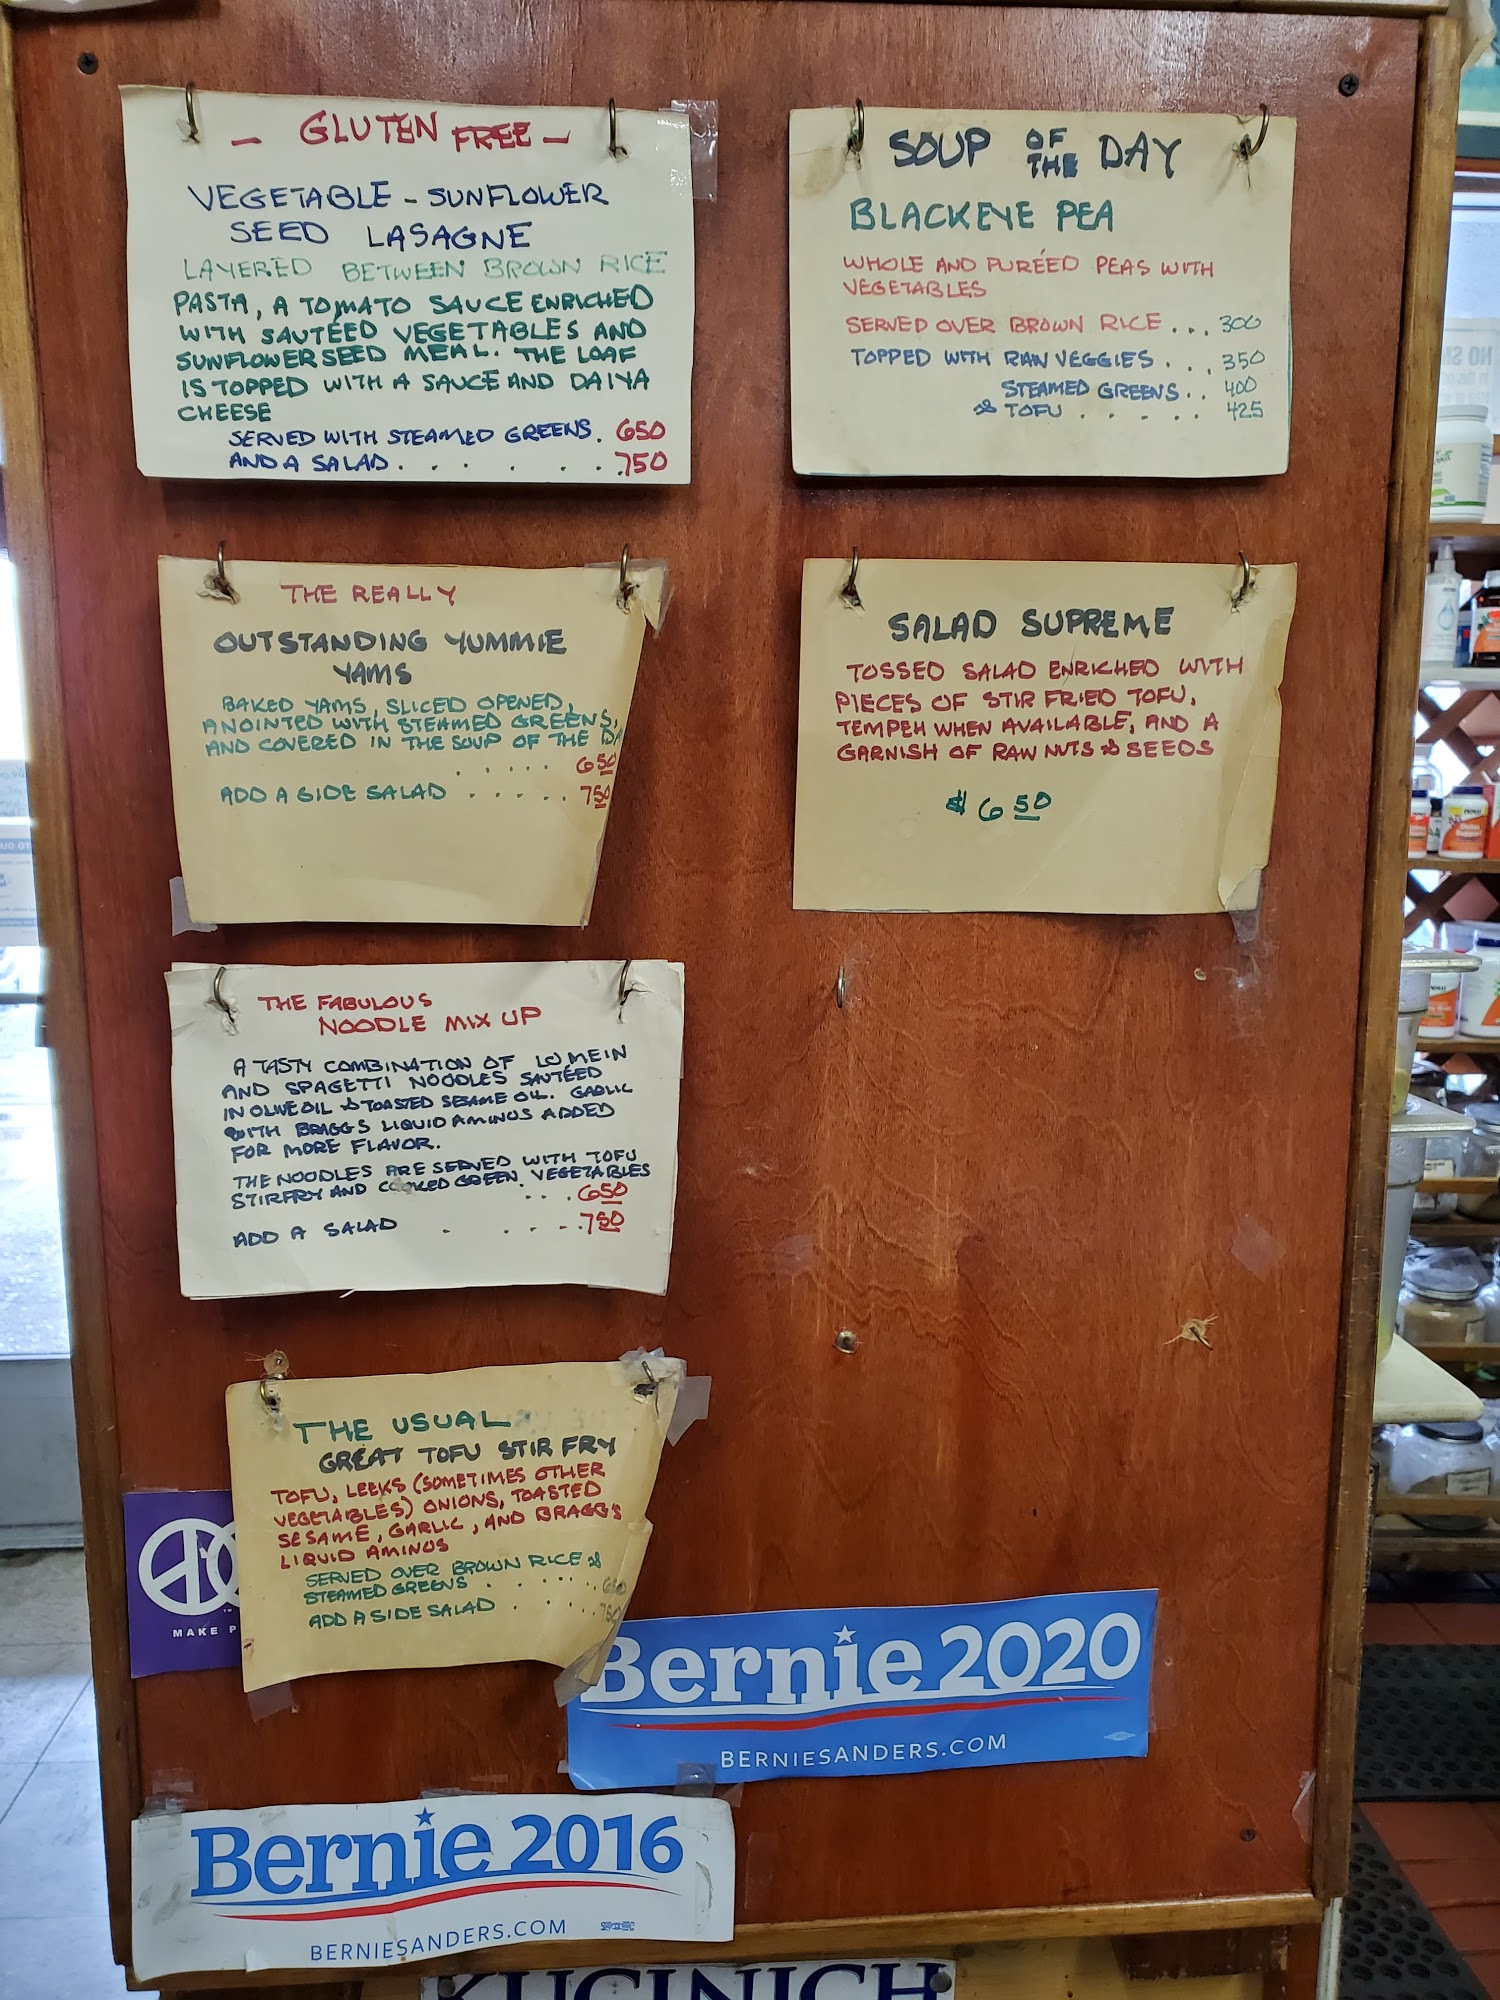 — GLUTEN FREE —
VEGETABLE - SUNFLOWER
SEED LASAGNE
LAYERED BETWEEN BROWN RICE
PASTA, A TOMATO SAUCE ENRICHED
WITH SAUTÉED VEGETABLES AND
SUNFLOWER SEED MEAL. THE LOAF
IS TOPPED WITH A SAUCE AND DAIYA
CHEESE
SERVED WITH STEAMED GREENS. 650
AND A SALAD . . . . . . 750
SOUP OF THE DAY
BLACKEYE PEA
WHOLE AND PURÉED PEAS WITH
VEGETABLES
SERVED OVER BROWN RICE ... 300
TOPPED WITH RAW VEGGIES . . . 350
STEAMED GREENS . . 400
& TOFU . . . . . . 425
THE REALLY
OUTSTANDING YUMMIE
YAMS
BAKED YAMS, SLICED OPENED,
ANOINTED WITH STEAMED GREENS,
AND COVERED IN THE SOUP OF THE DA
. . . . . 650
ADD A SIDE SALAD . . . . . 750
SALAD SUPREME
TOSSED SALAD ENRICHED WITH
PIECES OF STIR FRIED TOFU,
TEMPEH WHEN AVAILABLE, AND A
GARNISH OF RAW NUTS & SEEDS
$ 6 50
THE FABULOUS
NOODLE MIX UP
A TASTY COMBINATION OF LO MEIN
AND SPAGETTI NOODLES SAUTÉED
IN OLIVE OIL & TOASTED SESAME OIL. GARLIC
WITH BRAGGS LIQUID AMINOS ADDED
FOR MORE FLAVOR.
THE NOODLES ARE SERVED WITH TOFU
STIRFRY AND COOKED GREEN VEGETABLES
. . . 650
ADD A SALAD . . . . . 750
THE USUAL
GREAT TOFU STIR FRY
TOFU, LEEKS (SOMETIMES OTHER
VEGETABLES) ONIONS, TOASTED
SESAME, GARLIC, AND BRAGG'S
LIQUID AMINOS
SERVED OVER BROWN RICE &
STEAMED GREENS . . . . . . 650
ADD A SIDE SALAD . . . . . 750
MAKE P
Bernie 2020
BERNIESANDERS.COM
Bernie 2016
BERNIESANDERS.COM
KUCINICH